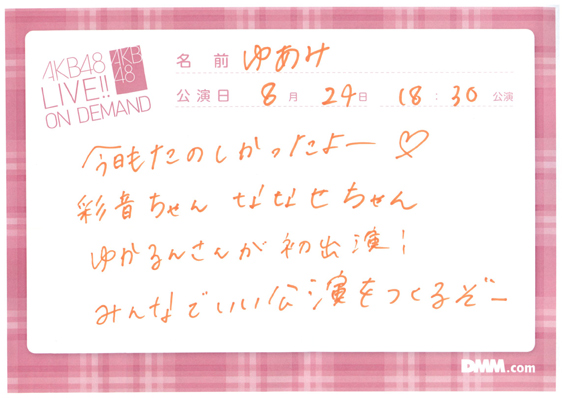 AKB48
LIVE!!
ON DEMAND
AKB
48
名前 ゆあみ
公演日 8月 24日 18:30 公演
今日もたのしかったよー♡
彩音ちゃん ななせちゃん
ゆかるんさんが初出演!
みんなでいい公演をつくるぞー
DMM.com